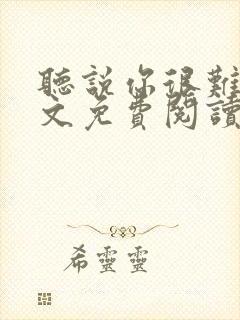 聽說你很難
文免費閱讀
希靈靈